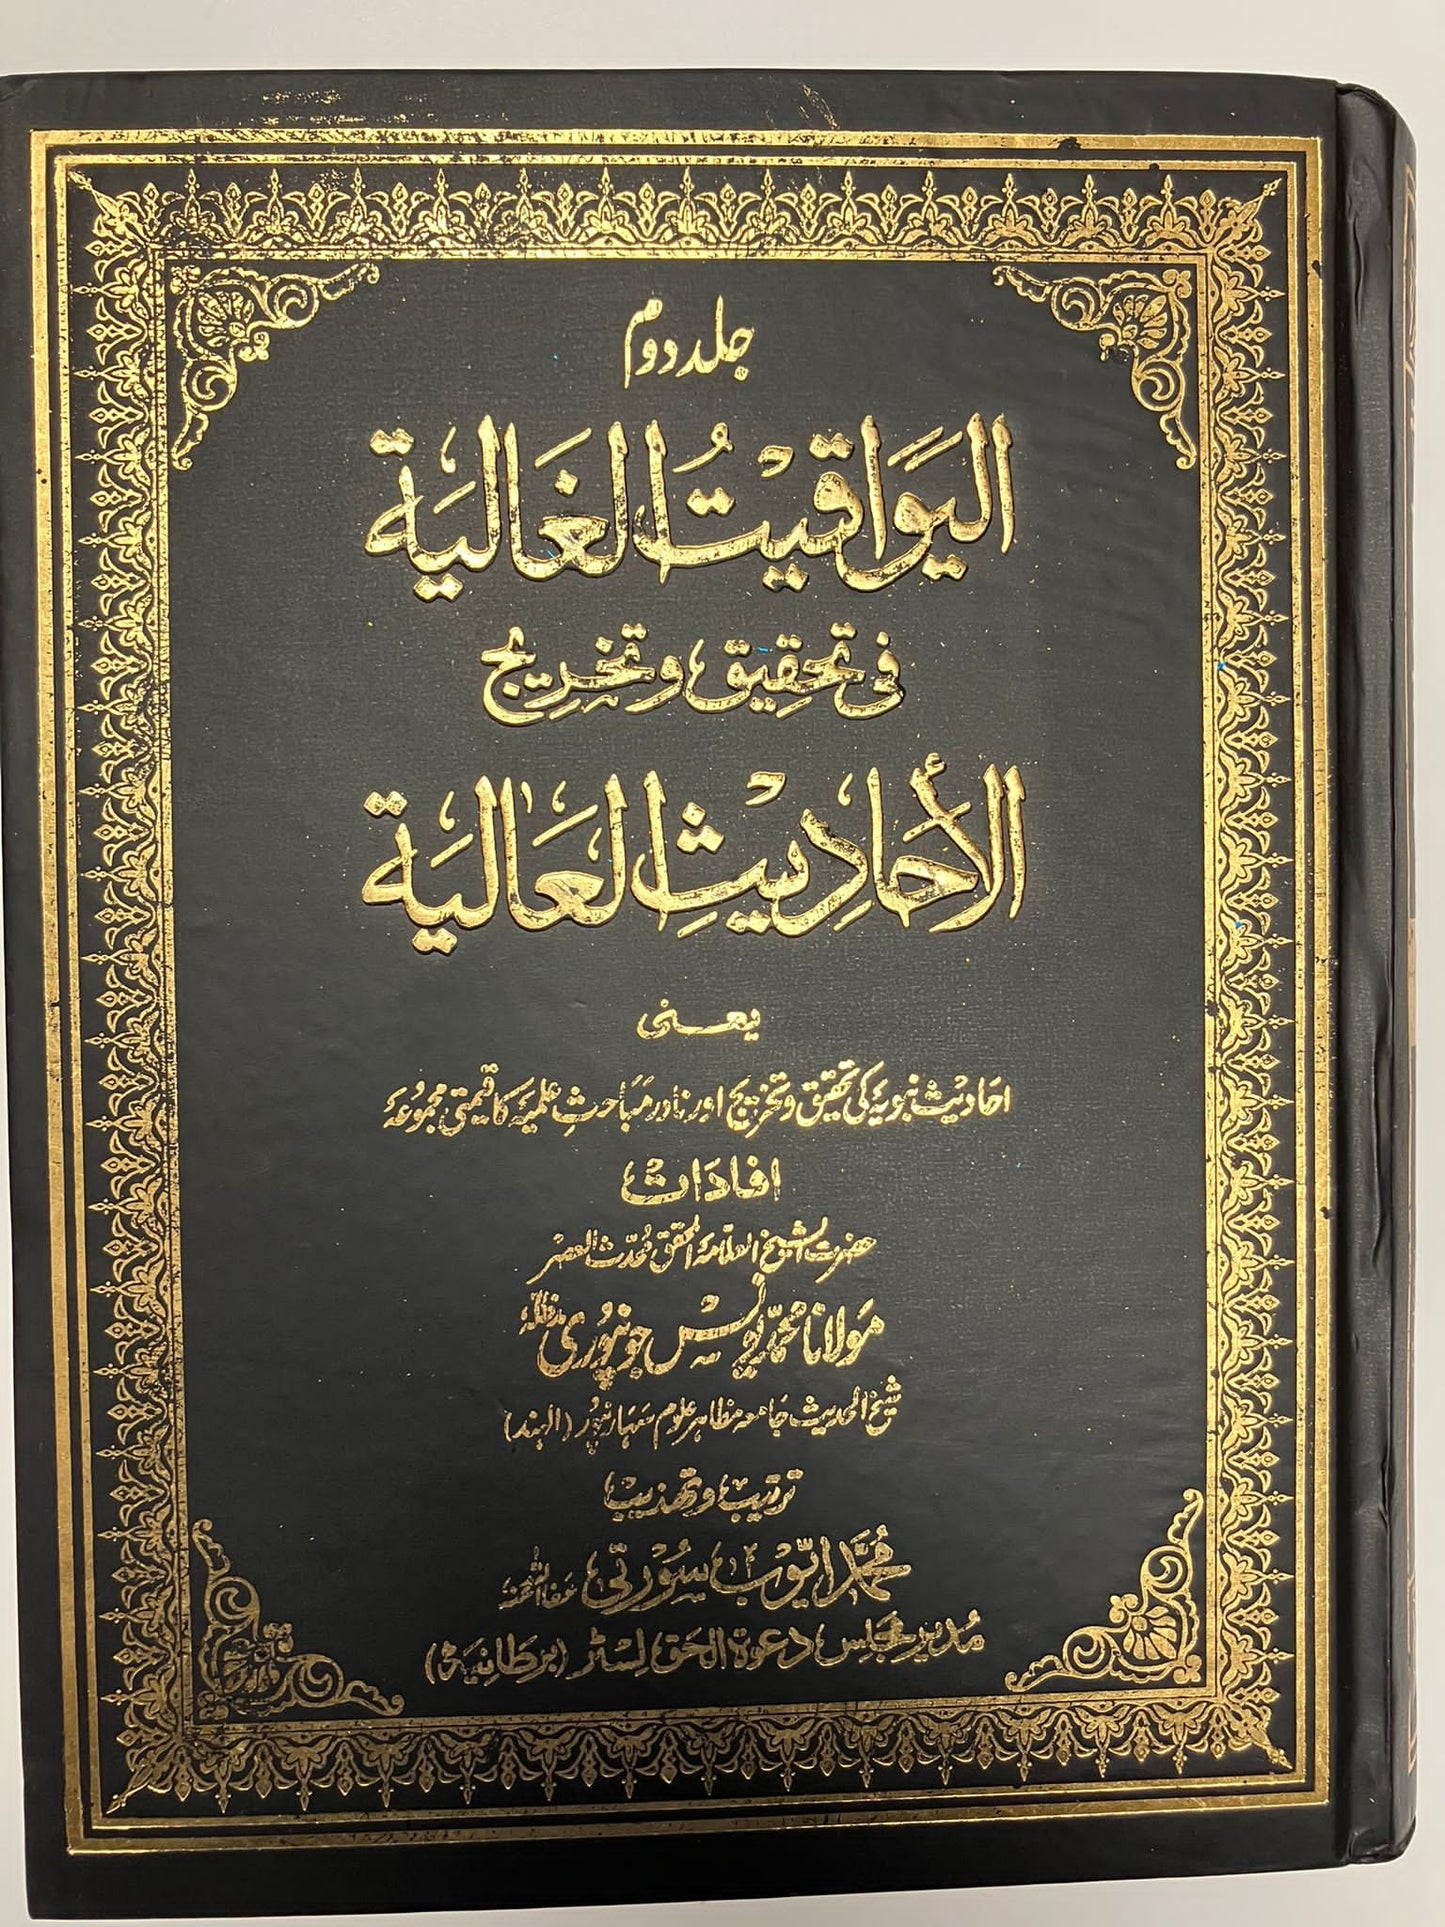 جلد دوم
اليَوَاقيْتُ الغَالِيَة
فى تحقِيق وتخرِيج
الأحَادِيْثِ العَالِيَة
يعنى
احادیث نبویہ کی تحقیق وتخریج اور نادر مَبَاحثِ علمیہ کا قیمتی مجموعہ
افادات
حضرت الشیخ العلامہ المحقق محدّث العصر
مَولانا محمّد یونس جونپوری مدظلہ
شیخ الحدیث جامعہ مظاہر علوم سہارنپور (الہند)
ترتیب وتہذیب
محُمَّد ایّوب سُوْرتی عفا اللہ عنہ
مُدیر مجلس دعوة الحق لسٹر (برطانیہ)